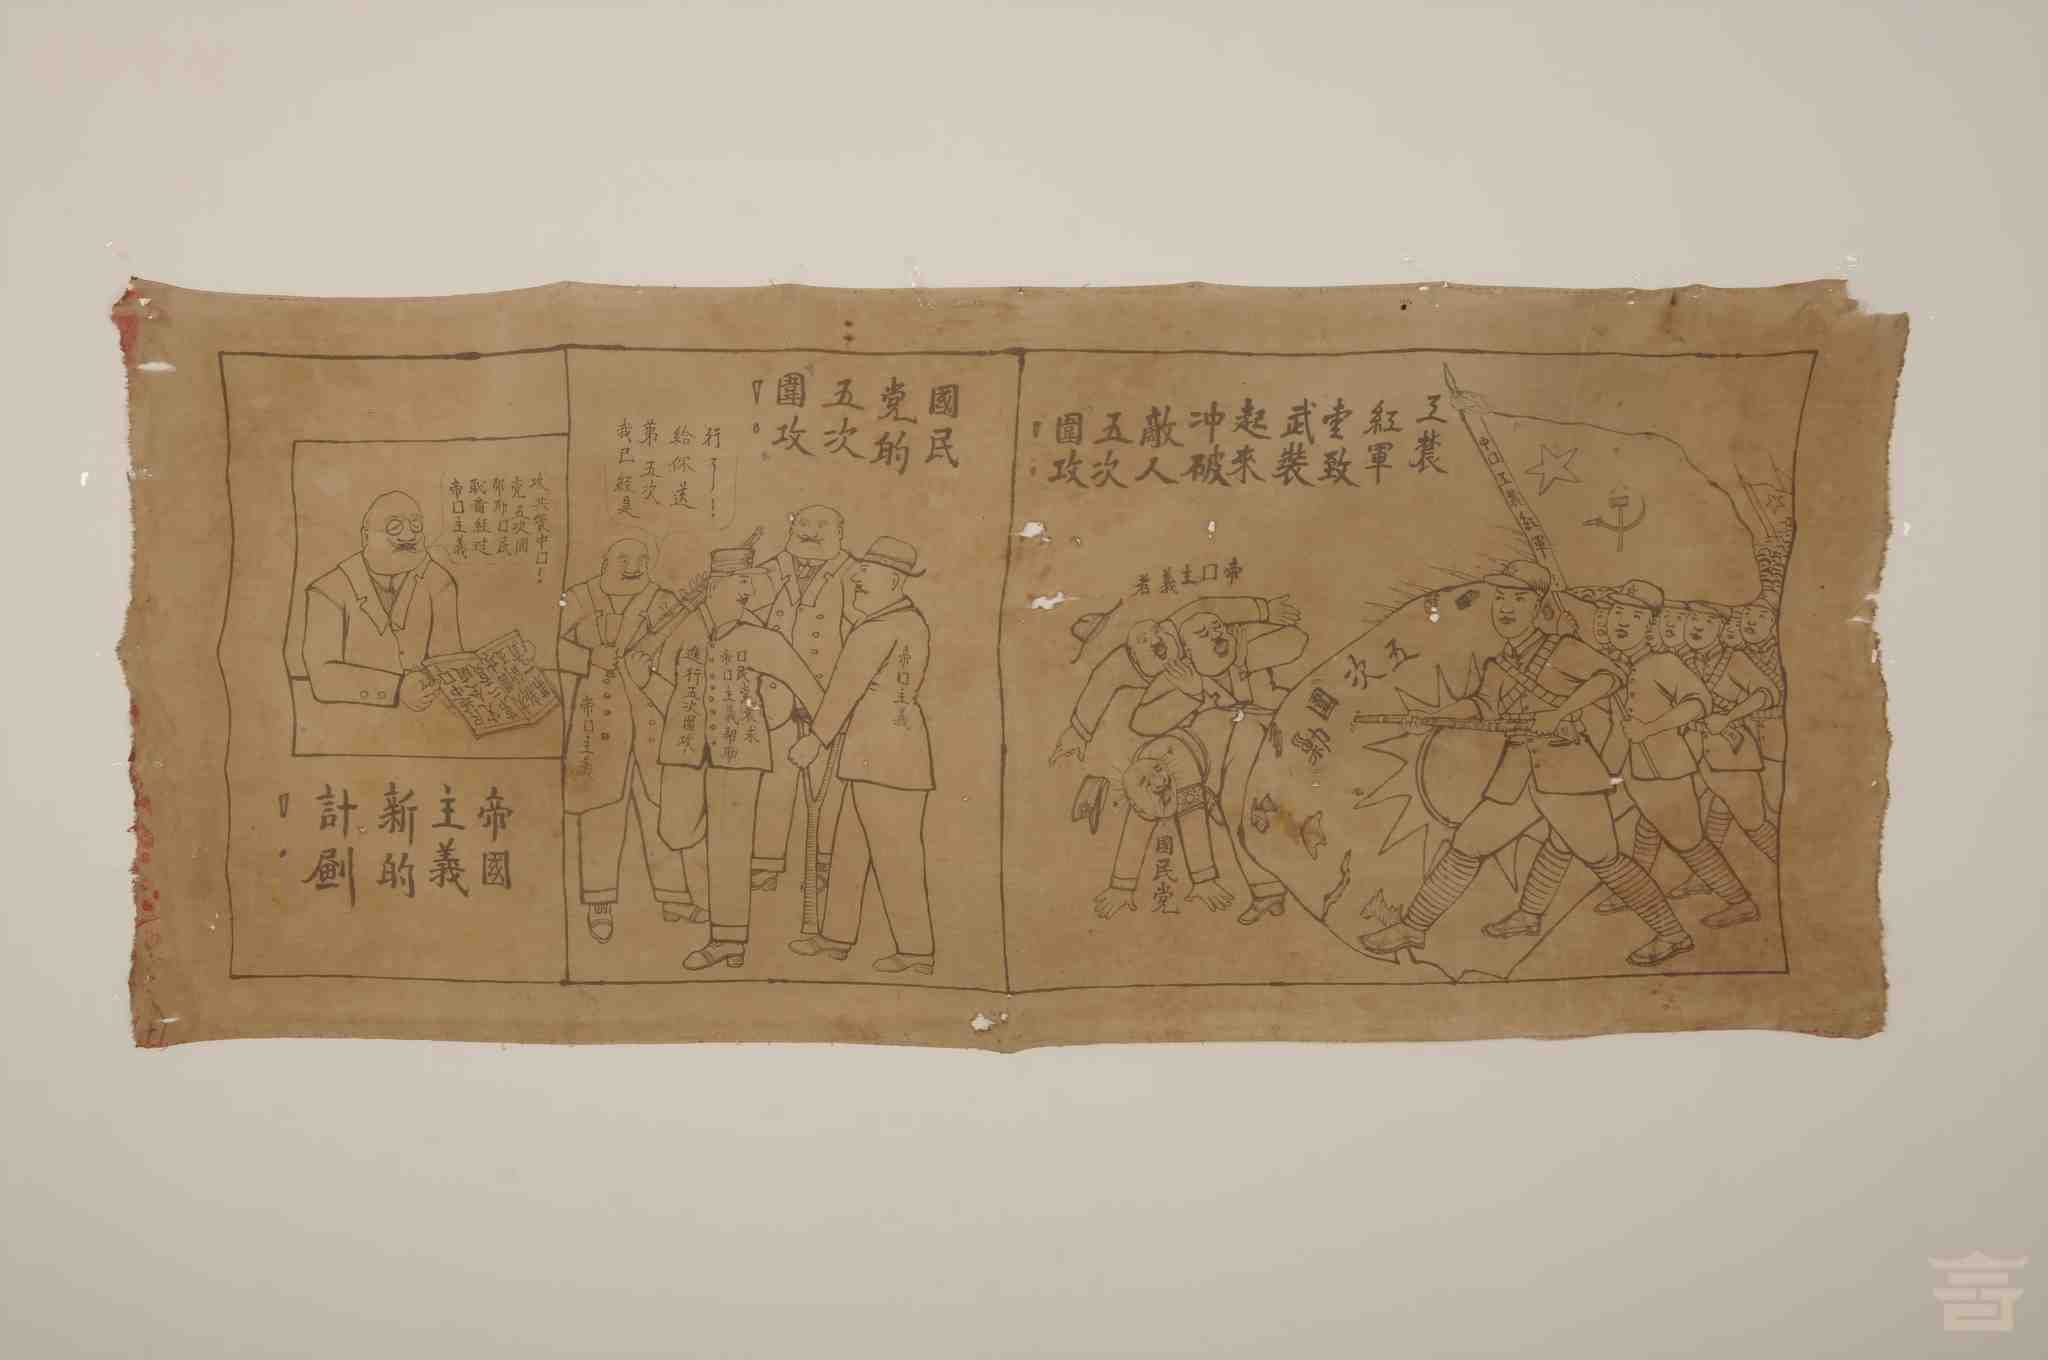 帝口主義
經过
帮助口民
党五次囲
攻共製中口！
帝國
主義
新的
計劃
！
國民
党的
五次
圍攻
！
我已經是
第五次
給你送
行了！
帝口主義
口民党哀求
帝口主義帮助
進行五次囲攻
帝口主義
工農
紅軍
壹致
武裝
起來
冲破
敵人
五次
圍攻
！
中口工農紅軍
帝口主義者
五次圍剿
國民党